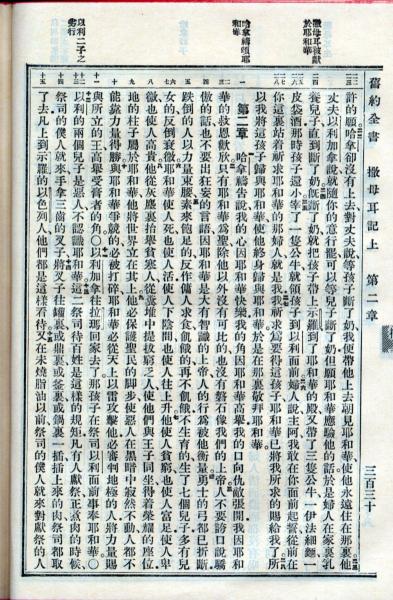 舊約全書 撒母耳記上 第二章 三百三十
撒母耳被獻
於耶和華
許的願哈拿卻沒有上去對丈夫說等孩子斷了奶我便帶他上去朝見耶和華使他永遠住在那裏他
丈夫以利加拿說就隨你的意行罷可以等兒子斷了奶但願耶和華應驗他的話於是婦人在家裏乳
養兒子直到斷了奶旣斷了奶就把孩子帶上示羅到了耶和華的殿又帶了三隻公牛一伊法細麵一
皮袋酒那時孩子還小宰了一隻公牛就領孩子到以利面前婦人說主阿我敢在你面前起誓從前在
你這裏站着祈求耶和華的那婦人就是我我祈求爲要得這孩子耶和華已將我所求的賜給我了所
以我將這孩子歸與耶和華使他終身歸與耶和華於是在那裏敬拜耶和華
哈拿禱頌耶
和華
第二章 哈拿禱告說我的心因耶和華快樂我的角因耶和華高舉我的口向仇敵張開我因耶和
華的救恩歡欣只有耶和華爲聖除他以外沒有可比的也沒有磐石像我們的上帝人不要誇口說驕
傲的話也不要出狂妄的言語因耶和華是大有智識的上帝人的行爲被他衡量勇士的弓都已折斷
跌倒的人以力量束腰素來飽足的反作傭人求食飢餓的再不飢餓不生育的生了七個兒子多有兒
女的反倒衰微耶和華使人死也使人活使人下陰間也使人往上升他使人貧窮也使人富足使人卑
微也使人高貴他從灰塵裏抬舉貧寒人從糞堆中提拔窮乏人使他們與王子同坐得着榮耀的座位
地的柱子屬於耶和華他將世界立在其上他必保護聖民的脚步使惡人在黑暗中寂然不動人都不
能靠力量得勝與耶和華爭競的必被打碎耶和華必從天上以雷攻擊他必審判地極的人將力量賜
與所立的王高舉受膏者的角〇以利加拿往拉瑪回家去了那孩子在祭司以利面前事奉耶和華〇
以利二子之
劣行
以利的兩個兒子是惡人不認識耶和華這二祭司待百姓是這樣的規矩凡有人獻祭正煮肉的時候
祭司的僕人就來手拿三齒的叉子將叉子往罐裏或鼎裏或釜裏或鍋裏一插插上來的肉祭司都取
了去凡上到示羅的以色列人他們都是這樣看待又在未燒脂油以前祭司的僕人就來對獻祭的人